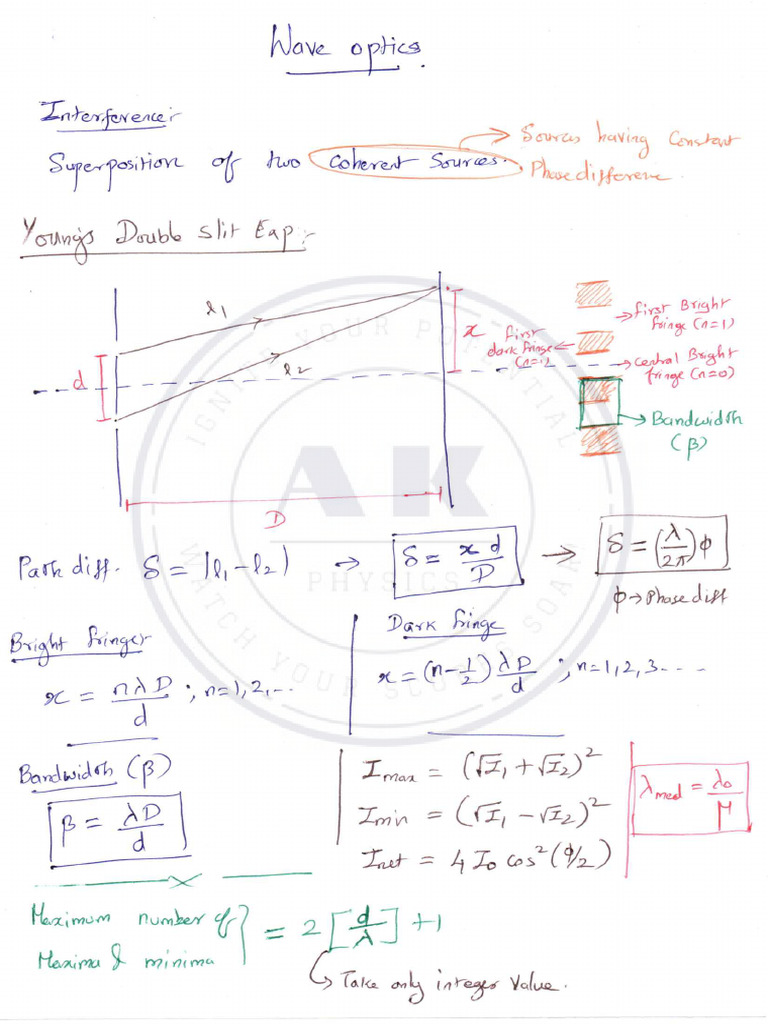 Wave optics.
Interference:-
Superposition of two Coherent Sources.
Sources having Constant
Phase difference.
Young's Double Slit Exp:-
l1
l2
d
D
x
first
dark fringe
(n=1)
first Bright
fringe (n=1)
central Bright
fringe (n=0)
Bandwidth
(β)
IGNITE YOUR POTENTIAL
AK
PHYSICS
WATCH YOUR SCORES SOAR
Path diff. δ = |l1 - l2| → δ = xd/D → δ = (λ/2π)φ
φ → Phase diff
Bright fringe:
x = nλD/d ; n=1,2,...
Dark fringe
x = (n-1/2) λD/d ; n=1,2,3....
Bandwidth (β)
β = λD/d
Imax = (√I1 + √I2)²
Imin = (√I1 - √I2)²
Inet = 4I0 cos²(φ/2)
λmed = λ0/μ
Maximum number of
Maxima & minima } = 2[d/λ] + 1
Take only integer value.